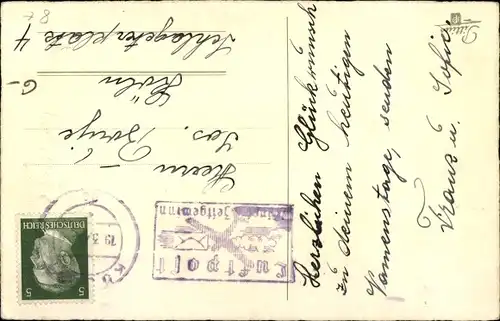 Herzlichen Glückwunsch
zu deinem heutigen
Namenstage, senden
Franz u. Sofie.
Herrn
Jos.
Köln
Schlageterplatz 4
Luftpost
Zeitgewinn
DEUTSCHES REICH
5 5
19.3.